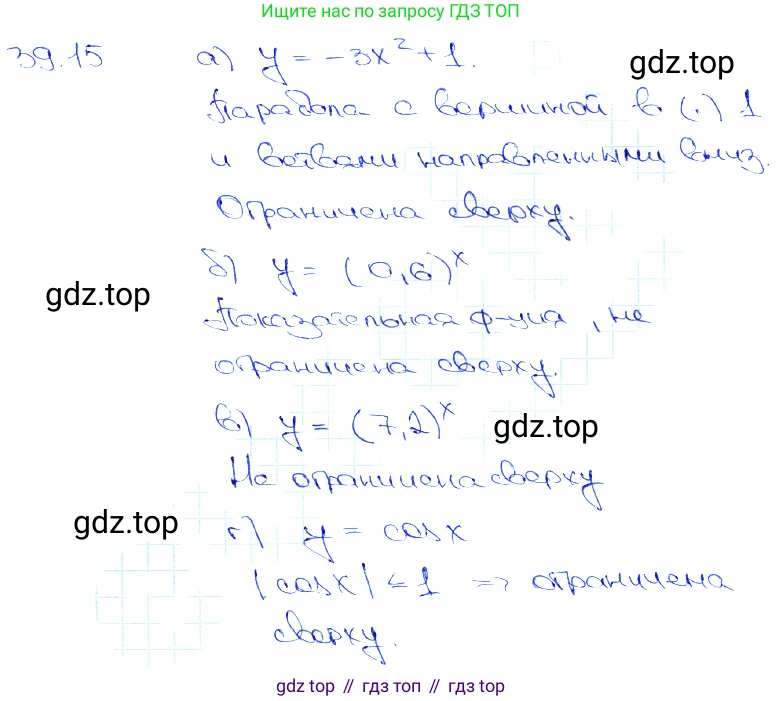 Ищите нас по запросу ГДЗ ТОП
39.15 а) y = -3x² + 1.
gdz.top
Парабола с вершиной в (.) 1
и ветвами направленными вниз.
Ограничена сверху.
б) y = (0,6)^x
gdz.top
Показательная ф-ция, не
ограничена сверху.
в) y = (7,2)^x
gdz.top
Не ограничена сверху
gdz.top
г) y = cosx
|cosx| ≤ 1 => ограничена
сверху.
gdz top // гдз топ // gdz top